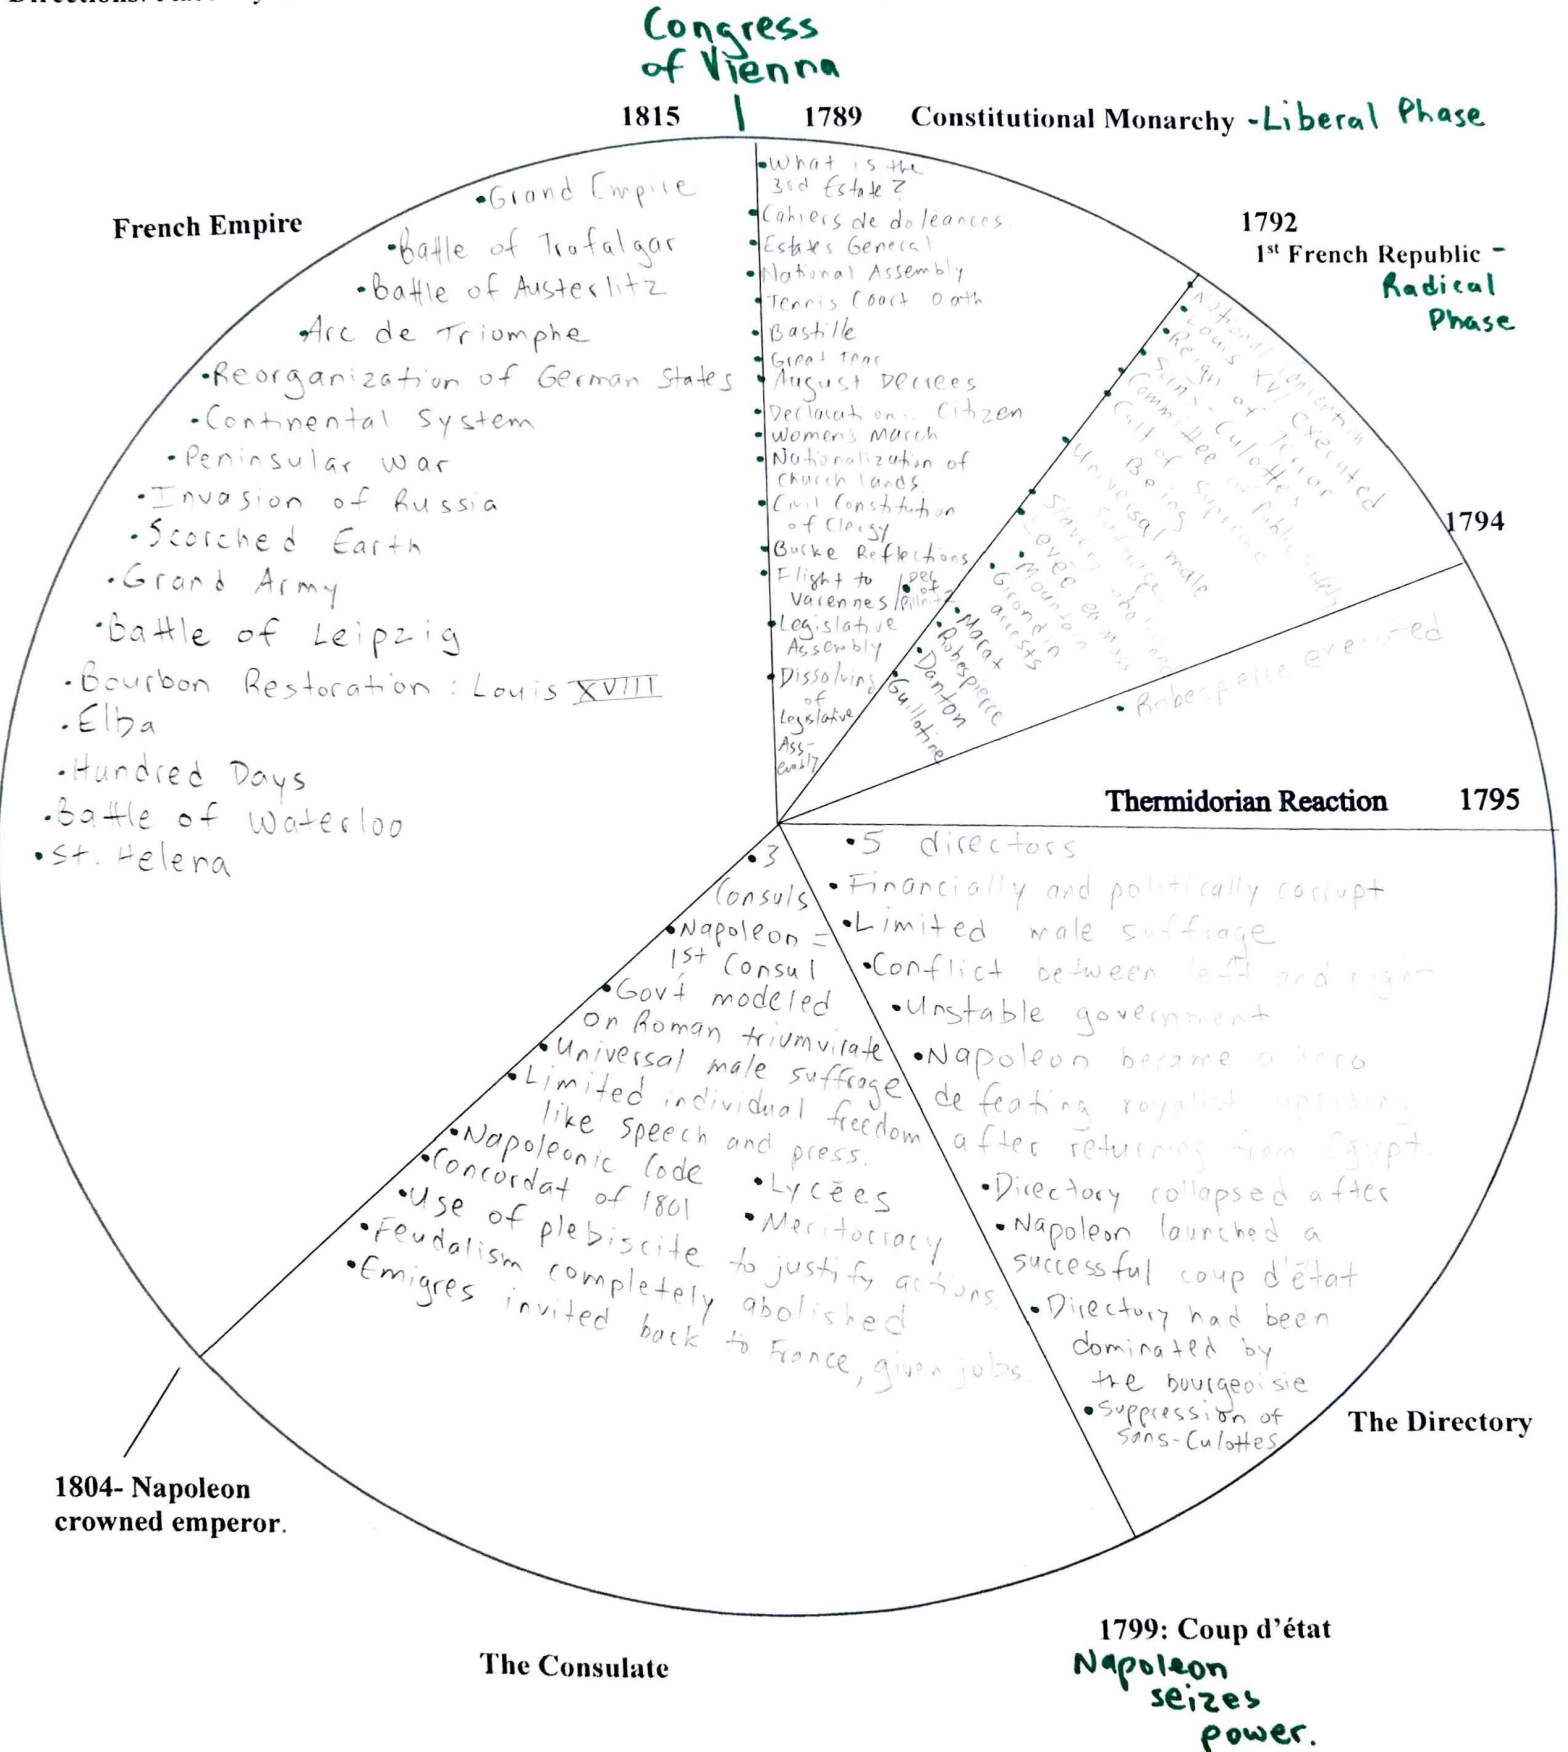 Congress
of Vienna
1815 | 1789 Constitutional Monarchy - Liberal Phase
French Empire
•Grand Empire
•Battle of Trafalgar
•Battle of Austerlitz
•Arc de Triomphe
•Reorganization of German States
•Continental System
•Peninsular War
•Invasion of Russia
•Scorched Earth
•Grand Army
•Battle of Leipzig
•Bourbon Restoration : Louis XVIII
•Elba
•Hundred Days
•Battle of Waterloo
•St. Helena
•What is the
3rd Estate?
•Cahiers de doleances.
•Estates General
•National Assembly
•Tennis Court Oath
•Bastille
•Great Fear
•August Decrees
•Declaration... Citizen
•Women's March
•Nationalization of
church lands.
•Civil Constitution
of Clergy
•Burke Reflections
•Flight to
Varennes / •Dec
of
Pillnitz
•Legislative
Assembly
•Dissolving
of
Legislative
Ass-
embly
1792
1st French Republic -
Radical
Phase
•National Convention
•Louis XVI executed
•Reign of Terror
•Sans-Culottes
•Committee of Public Safety
•Cult of Supreme
Being
•Universal male
suffrage
•Slavery abolished
•Levée en mass
•Mountain
•Girondin
arrests
•Marat
•Robespierre
•Danton
•Guillotine
1794
•Robespierre executed
Thermidorian Reaction 1795
•5 directors
•Financially and politically corrupt
•Limited male suffrage
•Conflict between left and right
•Unstable government
•Napoleon became a hero
defeating royalist uprising
after returning from Egypt.
•Directory collapsed after
•Napoleon launched a
successful coup d'état
•Directory had been
dominated by
the bourgeoisie
•Suppression of
Sans-Culottes
The Directory
•3
Consuls
•Napoleon =
1st Consul
•Gov't modeled
on Roman triumvirate
•Universal male suffrage
•Limited individual freedom
like speech and press.
•Napoleonic Code
•Concordat of 1801
•Lycées
•Meritocracy
•Use of plebiscite to justify actions.
•Feudalism completely abolished
•Emigres invited back to France, given jobs.
1804- Napoleon
crowned emperor.
The Consulate
1799: Coup d'état
Napoleon
seizes
power.